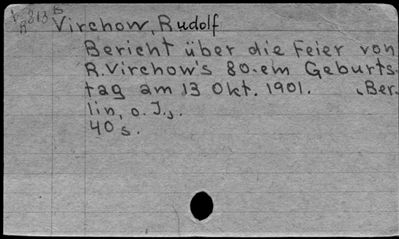 V.813 B
R
Virchow, Rudolf
Bericht über die Feier von
R. Virchow's 80.em Geburts-
tag am 13 Okt. 1901. Ber
lin, o. J.,
40 s.